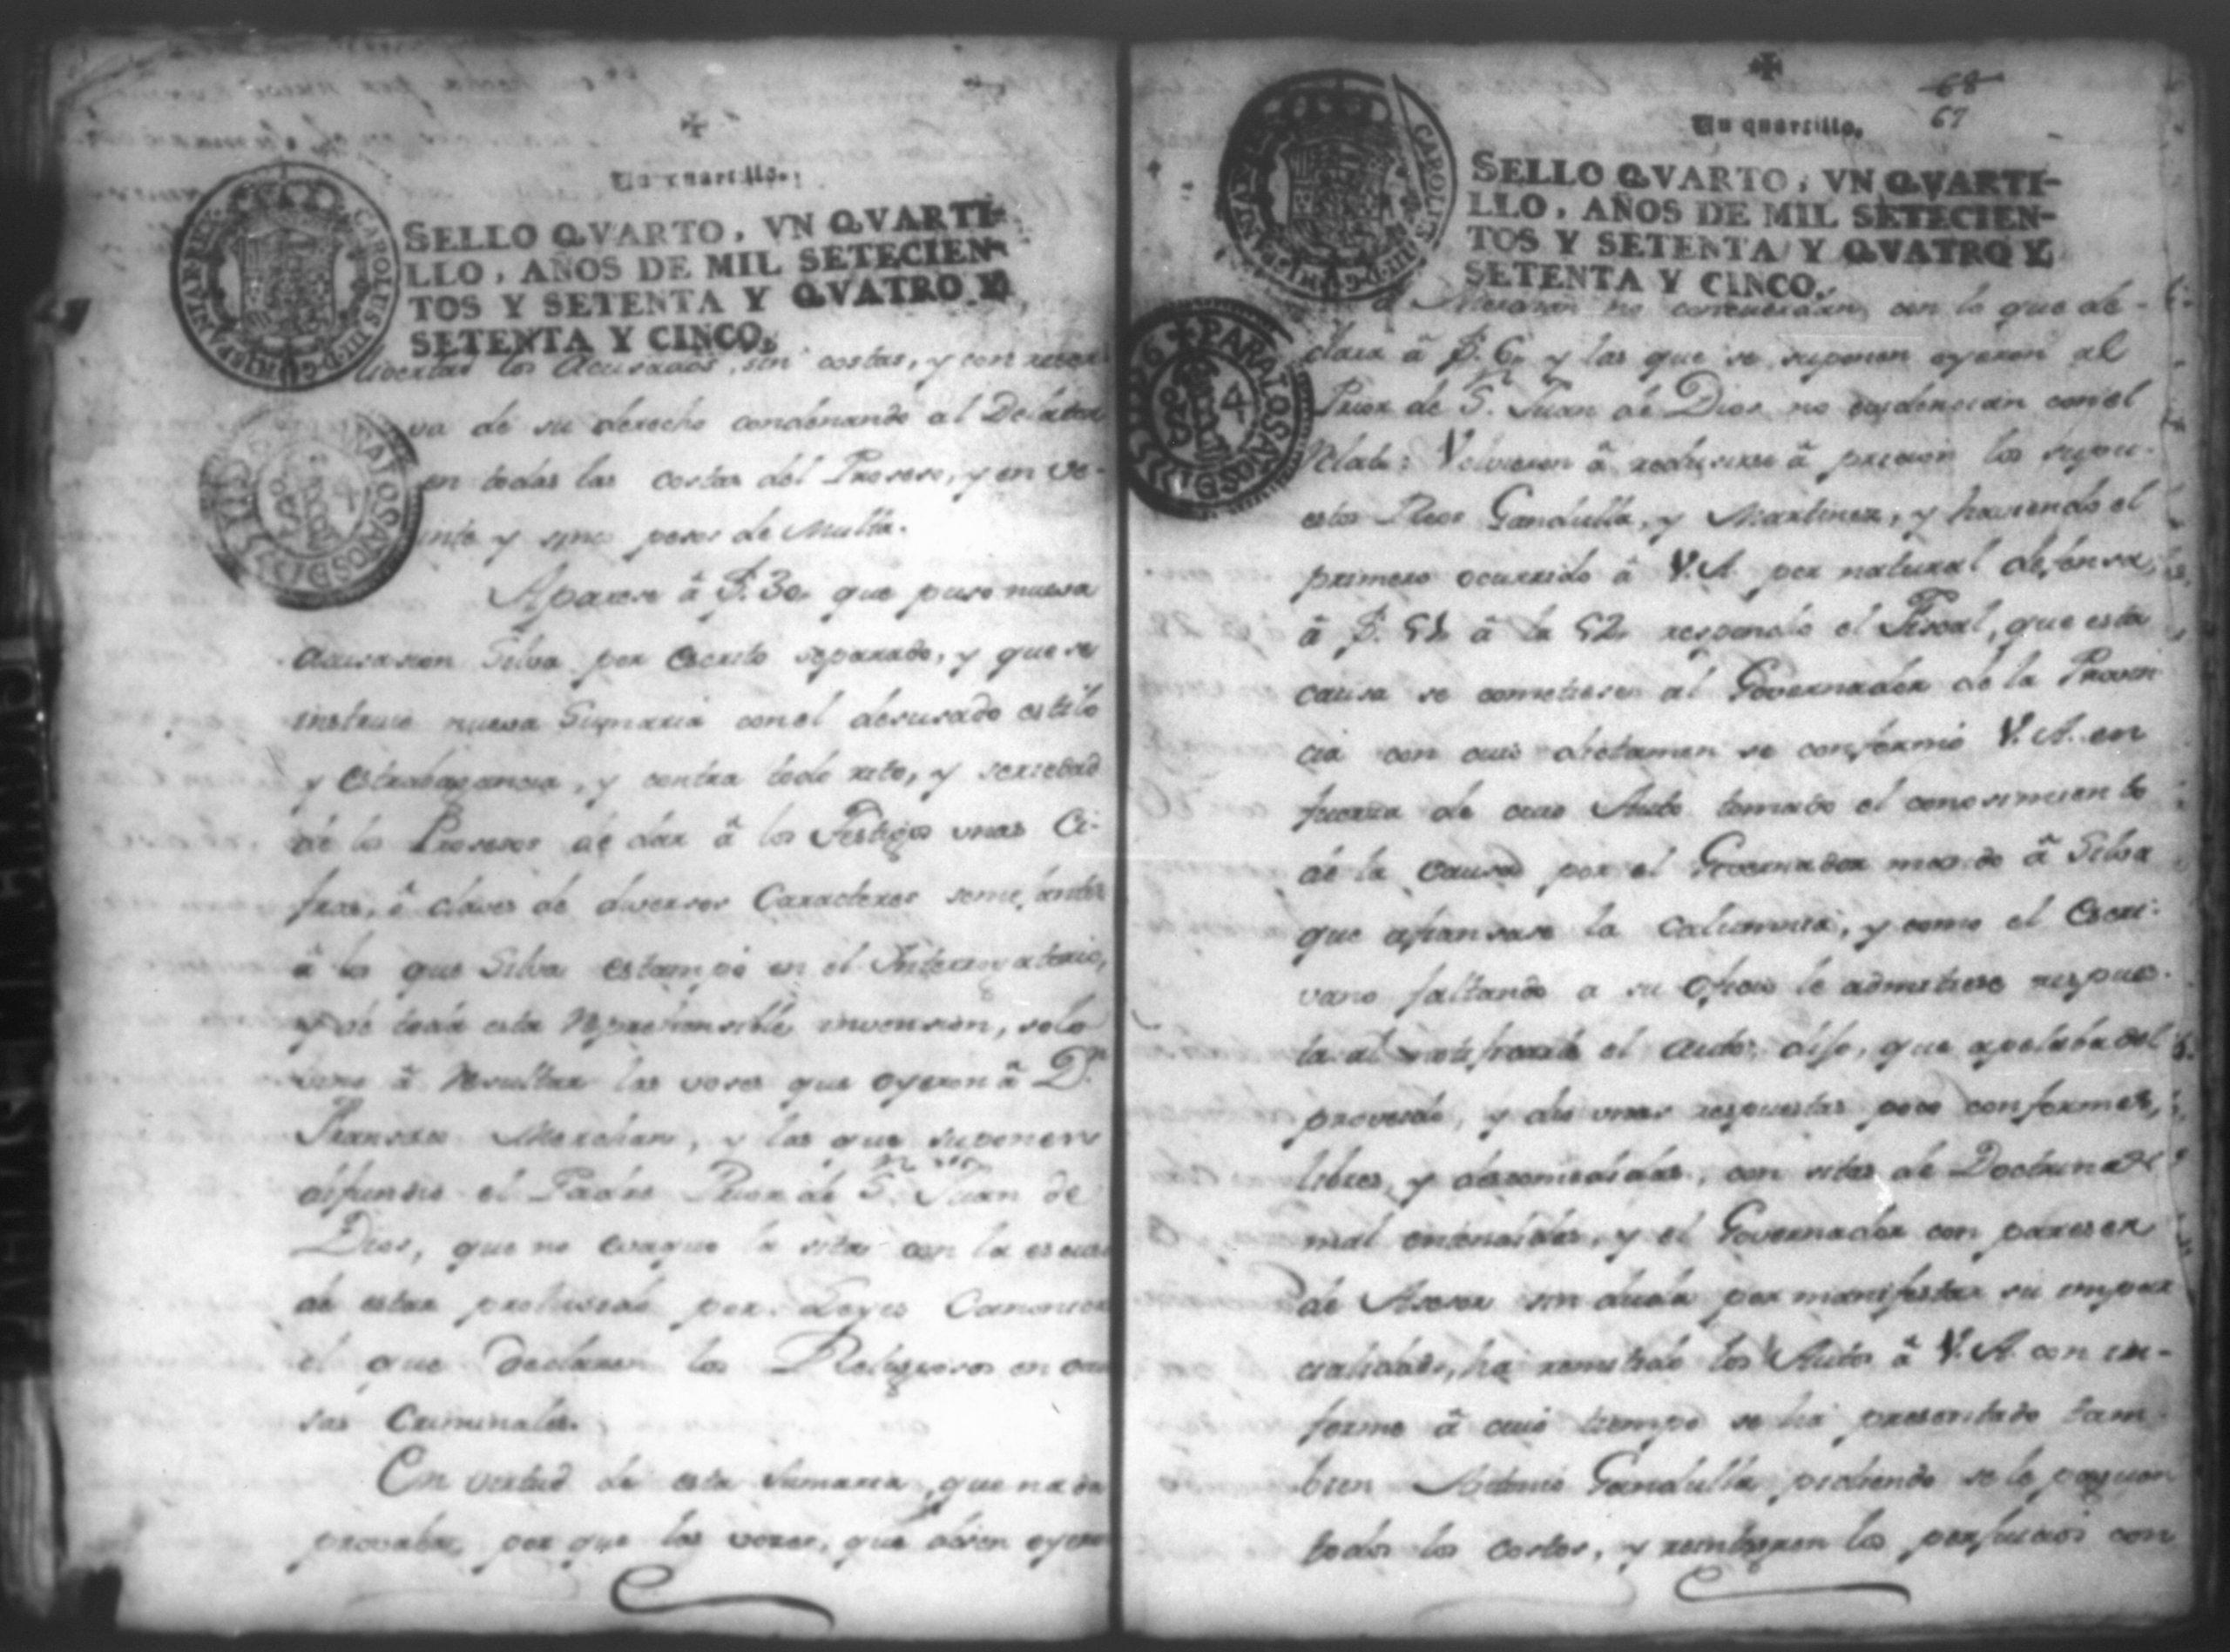 Un quartillo.
SELLO QVARTO, VN QVARTI-
LLO, AÑOS DE MIL SETECIEN-
TOS Y SETENTA Y QVATRO Y
SETENTA Y CINCO.
CAROLUS III D G HISPANIAR REX
libertad los Acusados, sin costas, y con reser
va de su derecho condenando al Delator
en todas las costas del Proseso, y en ve-
inte y sinco pesos de Multa.
Aparese â f. 30 que puso nueva
acusasion Silva por Escrito separado, y que se
instruió nueva Sumaria con el desusado estilo
y Estrabagancia, y contra todo rito, y seriedad
de los Prosesos de dar â los Testigos unas Ci-
fras, ô claves de diversos Caracteres semejantes
â los que Silva estampó en el Interrogatorio,
y de toda esta Reprehensible invension, solo
vino â Resultar las voses que oyeron â D.n
Fransisco Merchan, y las que suponen
difundió el Padre Prior de S.n Juan de
Dios, que no evaquó la sita con la escusa
de estar prohivido por Leyes Canonicas
el que declaren los Religiosos en cau
sas Criminales.
En virtud de esta Sumaria, que nada
provaba, por que las voses, que disen oyeron
68
67
Un quartillo.
SELLO QVARTO, VN QVARTI-
LLO, AÑOS DE MIL SETECIEN-
TOS Y SETENTA Y QVATRO Y
SETENTA Y CINCO.
CAROLUS III D G HISPANIAR REX
PARA LOS AÑOS DE
â Merchan no concuerdan con lo que de-
clara â f. 6 y las que se suponen oyeron al
Prior de S.n Juan de Dios no evidencian con el
Relato: Volvieron â redusirse â prision los supu-
estos Reos Gandulla, y Martinez, y haviendo el
primero ocurrido â V.A. por natural defensa,
â f. 51 â la 52 respondió el Fiscal, que esta
causa se cometiese al Governador de la Provin
cia con cuio dictamen se conformó V.A. en
fuerza de cuio Auto tomado el conosimiento
de la Causa por el Governador mandó â Silva
que afiansase la Calumnia, y como el Escri-
vano faltando a su Oficio le admitiese respues-
ta al notificarle el auto, dijo, que apelaba del
proveido, y dió unas respuestas poco conformes,
libres, y descomedidas, con sitas de Doctrinas
mal entendidas, y el Governador con pareser
de Asesor sin duda por manifestar su impar
cialidad, ha remitido los Autos â V.A. con in-
forme â cuio tiempo se ha presentado tam
bien Antonio Gandulla pidiendo se le paguen
todos las costas, y reintegren los perjuicios con